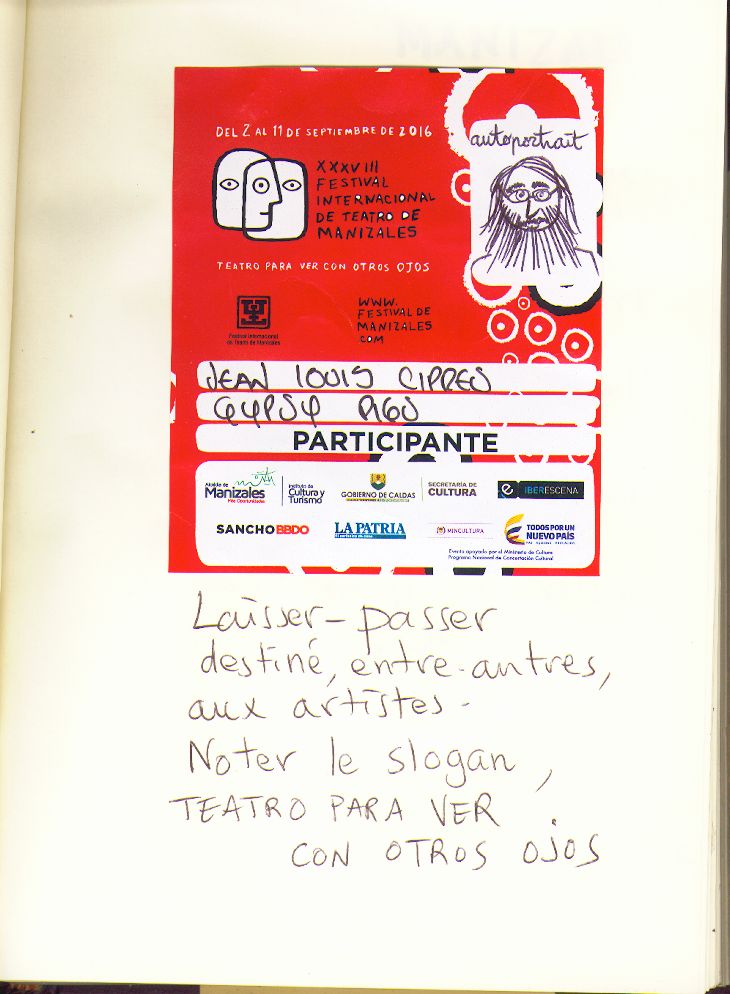 DEL 2 AL 11 DE SEPTIEMBRE DE 2016
autoportrait
XXXVIII
FESTIVAL
INTERNACIONAL
DE TEATRO DE
MANIZALES
TEATRO PARA VER CON OTROS OJOS
Festival Internacional
de Teatro de Manizales
WWW.
FESTIVALDE
MANIZALES
COM
JEAN LOUIS CIPRES
GYPSY PIGS
PARTICIPANTE
Alcaldía de
Manizales
Más Oportunidades
Instituto de
Cultura y
Turismo
GOBIERNO DE CALDAS
SECRETARÍA DE
CULTURA
IBERESCENA
SANCHO BBDO
LA PATRIA
MINCULTURA
TODOS POR UN
NUEVO PAÍS
PAZ EQUIDAD EDUCACIÓN
Evento apoyado por el Ministerio de Cultura
Programa Nacional de Concertación Cultural
Laisser-passer
destiné, entre-autres,
aux artistes.
Noter le slogan,
TEATRO PARA VER
CON OTROS OJOS